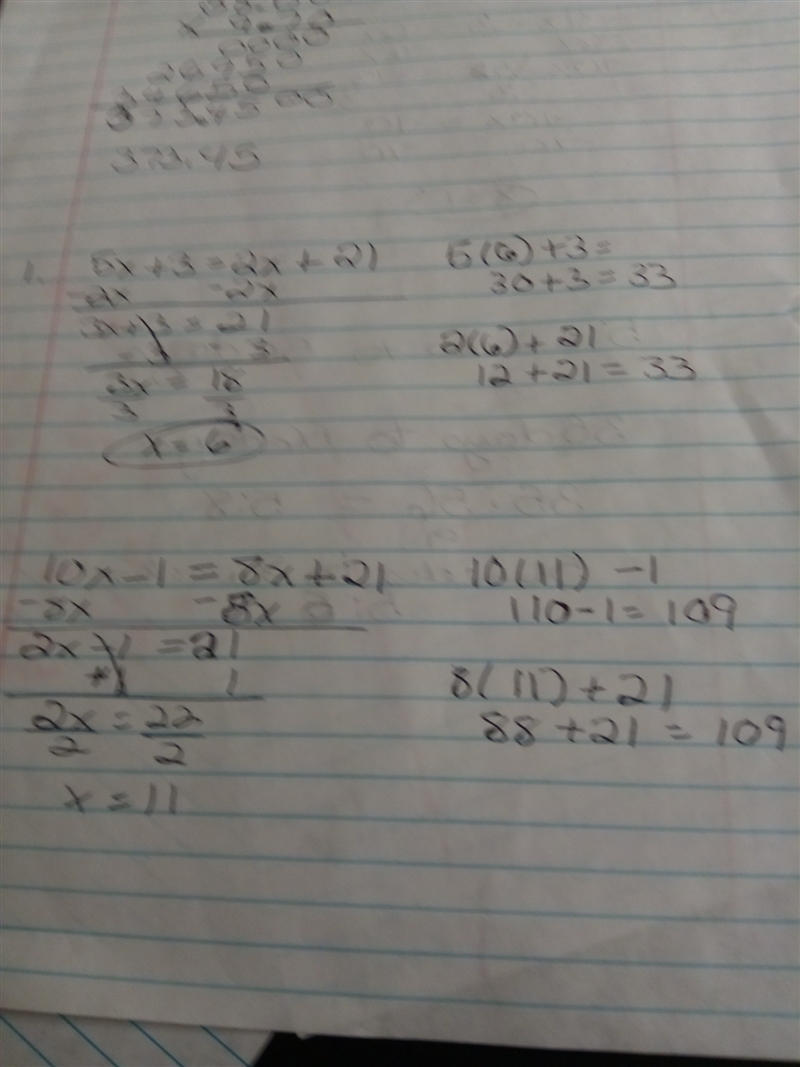 373.45
1. 5x + 3 = 2x + 21
-2x -2x
3x + 3 = 21
- 3 - 3
3x = 18
3 3
x = 6
5(6) + 3 =
30 + 3 = 33
2(6) + 21
12 + 21 = 33
10x - 1 = 8x + 21
-8x -8x
2x - 1 = 21
+1 1
2x = 22
2 2
x = 11
10(11) - 1
110 - 1 = 109
8(11) + 21
88 + 21 = 109